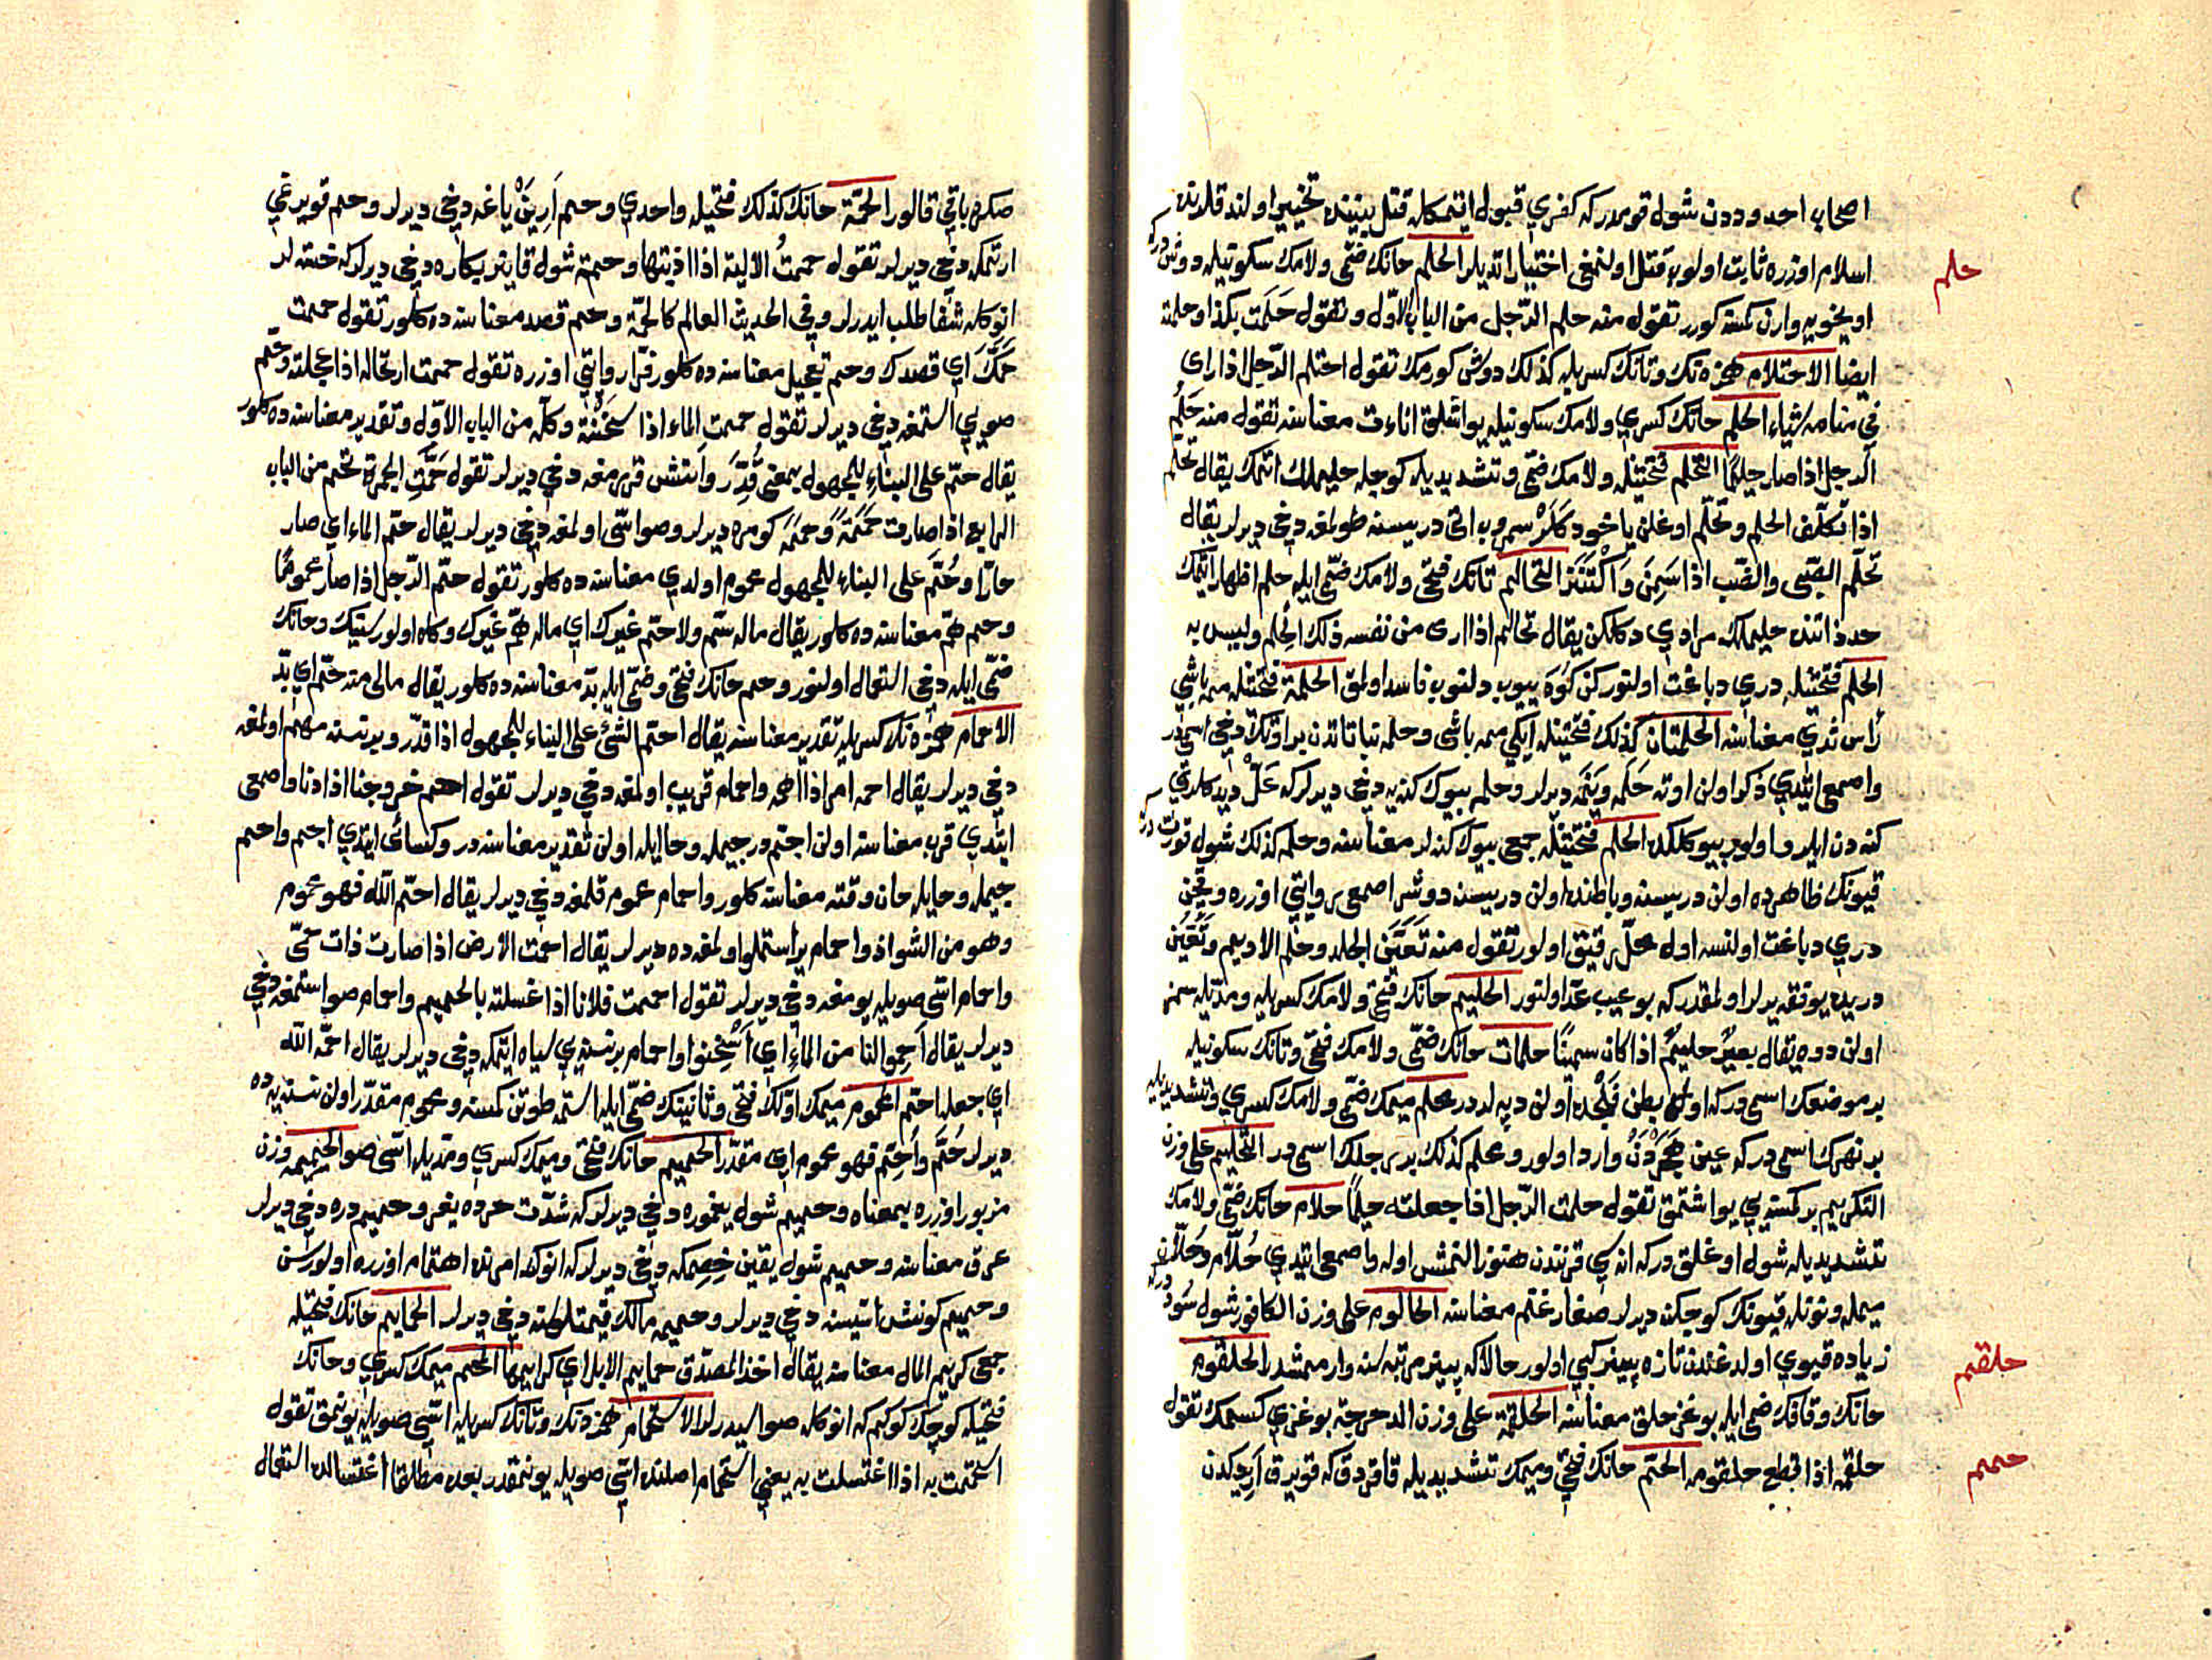 اصحاب احدوددن شول قومدر كه كفري قبول اتمكله قتل بيننده تخيير اولند قلرنده
اسلام اوزره ثابت اولوب قتل اولنمغى اختيار اتديلر الحلم حانك ضمى ولامك سكونيله دوش دركه
حلم
اويخويه وارن كمسنه كورر تقول منه حلم الرّجل من الباب الاوّل وتقول حَلَمت بكذا وحلمته
ايضا الاحتلام همزه نك وتانك كسريله كذلك دوش كورمك تقول احتلم الرّجل اذا راى
في منامه شياء الحلم حانك كسري ولامك سكونيله يواشلق اناءت معناسنه تقول منه حَلُم
الرجل اذا صار حليمًا التحلّم فتحتيله ولامك ضمى وتشديديله كوجله حليملك اتمك يقال تحلّم
اذا تكلّف الحلم وتحلّم اوغلن ياخود كَلَر سمروب اتى دريسنه طولمغه دخى ديرلر يقال
تحلّم الصّبى والضّب اذا سَمِنَ وَاكْتَنَز التحالم تانك فتحى ولامك ضمّى ايله حلم اظهار اتمك
حد ذاتنده حليملك مرادي دكلكن يقال تحالم اذا ارى من نفسه ذلك الحلم وليس به
الحلم فتحتيله دري دباغت اولنوركن كوه ييوب دلنوب فاسد اولمق الحلمة فتحتيله ممه باشي
رأس ثدي معناسنه الحلمتان كذلك فتحتيله ايكي ممه باشى وحلمه نباتاتدن بر اوتك دخى اسميدر
واصمعى ايتدي ذكر اولن اوته حَلَمه ويَنَمَه ديرلر وحلم بيوك كنه يه دخى ديرلركه عَلّ ديدكلري
كنه دن ايلرو اولوب بيوكلكده الحلم فتحتيله جمعى بيوك كنه لر معناسنه وحلم كذلك شول قورت در كه
قيونك ظاهرده اولن دريسنه وباطنده اولن دريسنه دوشر اصمعى روايتي اوزره وقچن
دري دباغت اولنسه اول محلّ رقيق اولور تقول منه تَعَيَّن الجلد وحلم الاديم وتَعَيَّن
دريده يوفقه يرلر اولمقدر كه بو عيب عدّ اولنور الحليم حانك فتحى ولامك كسريله ومدّيله سمز
اولن دوه يقال بعيرٌ حليمٌ اذا كان سمينًا حلمات حانك ضمّى ولامك فتحى وتانك سكونيله
بر موضعك اسمى دركه اول بطن فَلْجده اولن دپه لردر محلّم ميمك ضمّى ولامك كسري وتشديديله
بر نهرك اسمى دركه عين هَجَرْدَنْ وارد اولور ومحلم كذلك بر رجلك اسمى در التحليم على وزن
التكريم بر كمسنه يي يواشتمق تقول حلمت الرّجل اذا جعلته حليمًا حلام حانك ضمّى ولامك
تشديديله شول اوغلق دركه انه سي قرنندن هنوز النمش اوله واصمعى ايتدي حُلّام وحُلّان
ميمله ونونله قيونك كوچكن ديرلر صغار غنم معناسنه الحالوم على وزن الكافور شول سود دركه
زياده قيوي اولدغندن تازه پينير كبي اولور حالا كه پينير مرتبه سنه وارممشدر الحلقوم
حلقم
حانك وقافك ضمى ايله بوغز حلق معناسنه الحلقمة على وزن الدحرجة بوغزي كسمك تقول
حلقمه اذا قطع حلقومه الحمّ حانك فتحى وميمك تشديديله قاقردق كه قويرق اريدكدن
حمم
صكره باقي قالور الحمّة حانك كذلك فتحيله واحدي وحم اَرِيَنْ ياغه دخى ديرلر وحم قويرغي
ارتمكه دخى ديرلر تقول حممتُ الالية اذا اذبتها وحمة شول قاينر بيكاره دخى ديرلركه خسته لر
انوكله شفا طلب ايدرلر وفي الحديث العالم كالحمّة وحم قصد معناسنه ده كلور تقول حممت
حَمَّكَ اي قصدك وحم تعجيل معناسنه ده كلور فرّا روايتي اوزره تقول حممت ارتحاله اذا عجلته وحم
صويي استمغه دخى ديرلر تقول حممت الماء اذا سَخَّنْتَهُ وكلّه من الباب الاوّل وتقدير معناسنه ده كلور
يقال حمّ على البناءِ للمجهول بمعنى قُدِّرَ واتش قزرمغه دخى ديرلر تقول حَمَّتِ الجمرة تحم من الباب
الرابع اذا صارت حُمَمَةً وحُمَمَه كومره ديرلر وصو اسّى اولمغه دخى ديرلر يقال حمّ الماء اي صار
حارّا وحُمَّ على البناء للمجهول محموم اولدي معناسنه ده كلور تقول حمّ الرّجل اذا صار محمومًا
وحم همّ معناسنه ده كلور يقال ماله سمّ ولا حمّ غيرك اي ماله همّ غيرك وكاه اولور سينك وحانك
ضمّى ايله دخى استعمال اولنور وحم حانك فتحى وضمّى ايله بدّ معناسنه ده كلور يقال مالى منه حمّ اي بدّ
الاحمام همزه نك كسريله تقدير معناسنه يقال احمّ الشئ على البناء للمجهول اذا قدّر وبر نسنه مهتم اولمغه
دخى ديرلر يقال احمه امر اذا اهمه واحمام قريب اولمغه دخى ديرلر تقول احم خروجنا اذا دنا واصمعى
ايتدي قرب معناسنه اولن اجتم در جيمله وحا ايله اولن تقدير معناسنه در وكسائى ايتدي اجم واحم
جيمله وحايله حان وقته معناسنه كلور واحمام محموم قلمغه دخى ديرلر يقال احمّه الله فهو محموم
وهو من الشواذ واحمام ير استملو اولمغه ده ديرلر يقال احمت الارض اذا صارت ذات حمّى
واحمام اسّى صويله يومغه دخى ديرلر تقول احممت فلانا اذا غسلته بالحميم واحمام صو استمغه دخى
ديرلر يقال اَحِمّوا لنا من الماءِ اي اَسْخِنوا واحمام بر نسنه يي سياه ايتمكه دخى ديرلر يقال احمّه الله
اي جعله احمّ المحموم ميمك اوّلك فتحى وثانينك ضمّى ايله استمه طوتن كمسنه ومحموم مقدّر اولن نسنه يه ده
ديرلر حُمَّ واُحِمَّ فهو محموم اي مقدّر الحميم حانك فتحى وميمك كسري ومدّيله اسّى صو الحميمة وزن
مزبور اوزره بمعناه وحميم شول يغموره دخى ديرلركه شدّت حرده يغر وحميم دره دخى ديرلر
عرق معناسنه وحميم شول يقين خصمكه دخى ديرلركه انوك امرنده اهتمام اوزره اولورسن
وحميم كونش اسّيسنه دخى ديرلر وحميمه مالك قيمتلوسنه دخى ديرلر الحمايم حانك فتحيله
جمعى كريم المال معناسنه يقال اخذ المصدّق حمايم الابل اي كرايمها المحم ميمك كسري وحانك
فتحيله كوچك كوكم كه انوكله صو اسيدرلر الاستحمام همزه نك وتانك كسريله اسّى صويله يونمق تقول
استحممت به اذا اغتسلت به يعنى استحمام اصلنده اسّى صويله يونمقدر بعده مطلقا اغتسالده استعمال